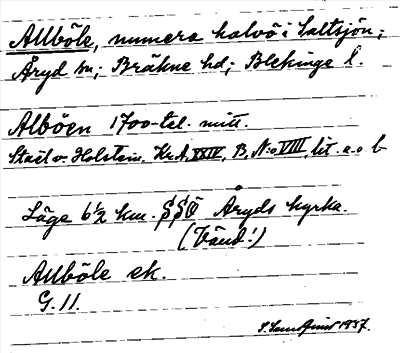 Allböle, numera halvö i Saltsjön;
Åryd sn; Bräkne hd; Blekinge l.
Alböen 1700-tal. mitt.
Staël v. Holstein. Kr.A. XXIV, B, N:o VIII, lit. a. o b
Läge 6 1/2 km. SSÖ Åryds kyrka.
(Vänd!)
Allböle ek.
G. 11.
1937.